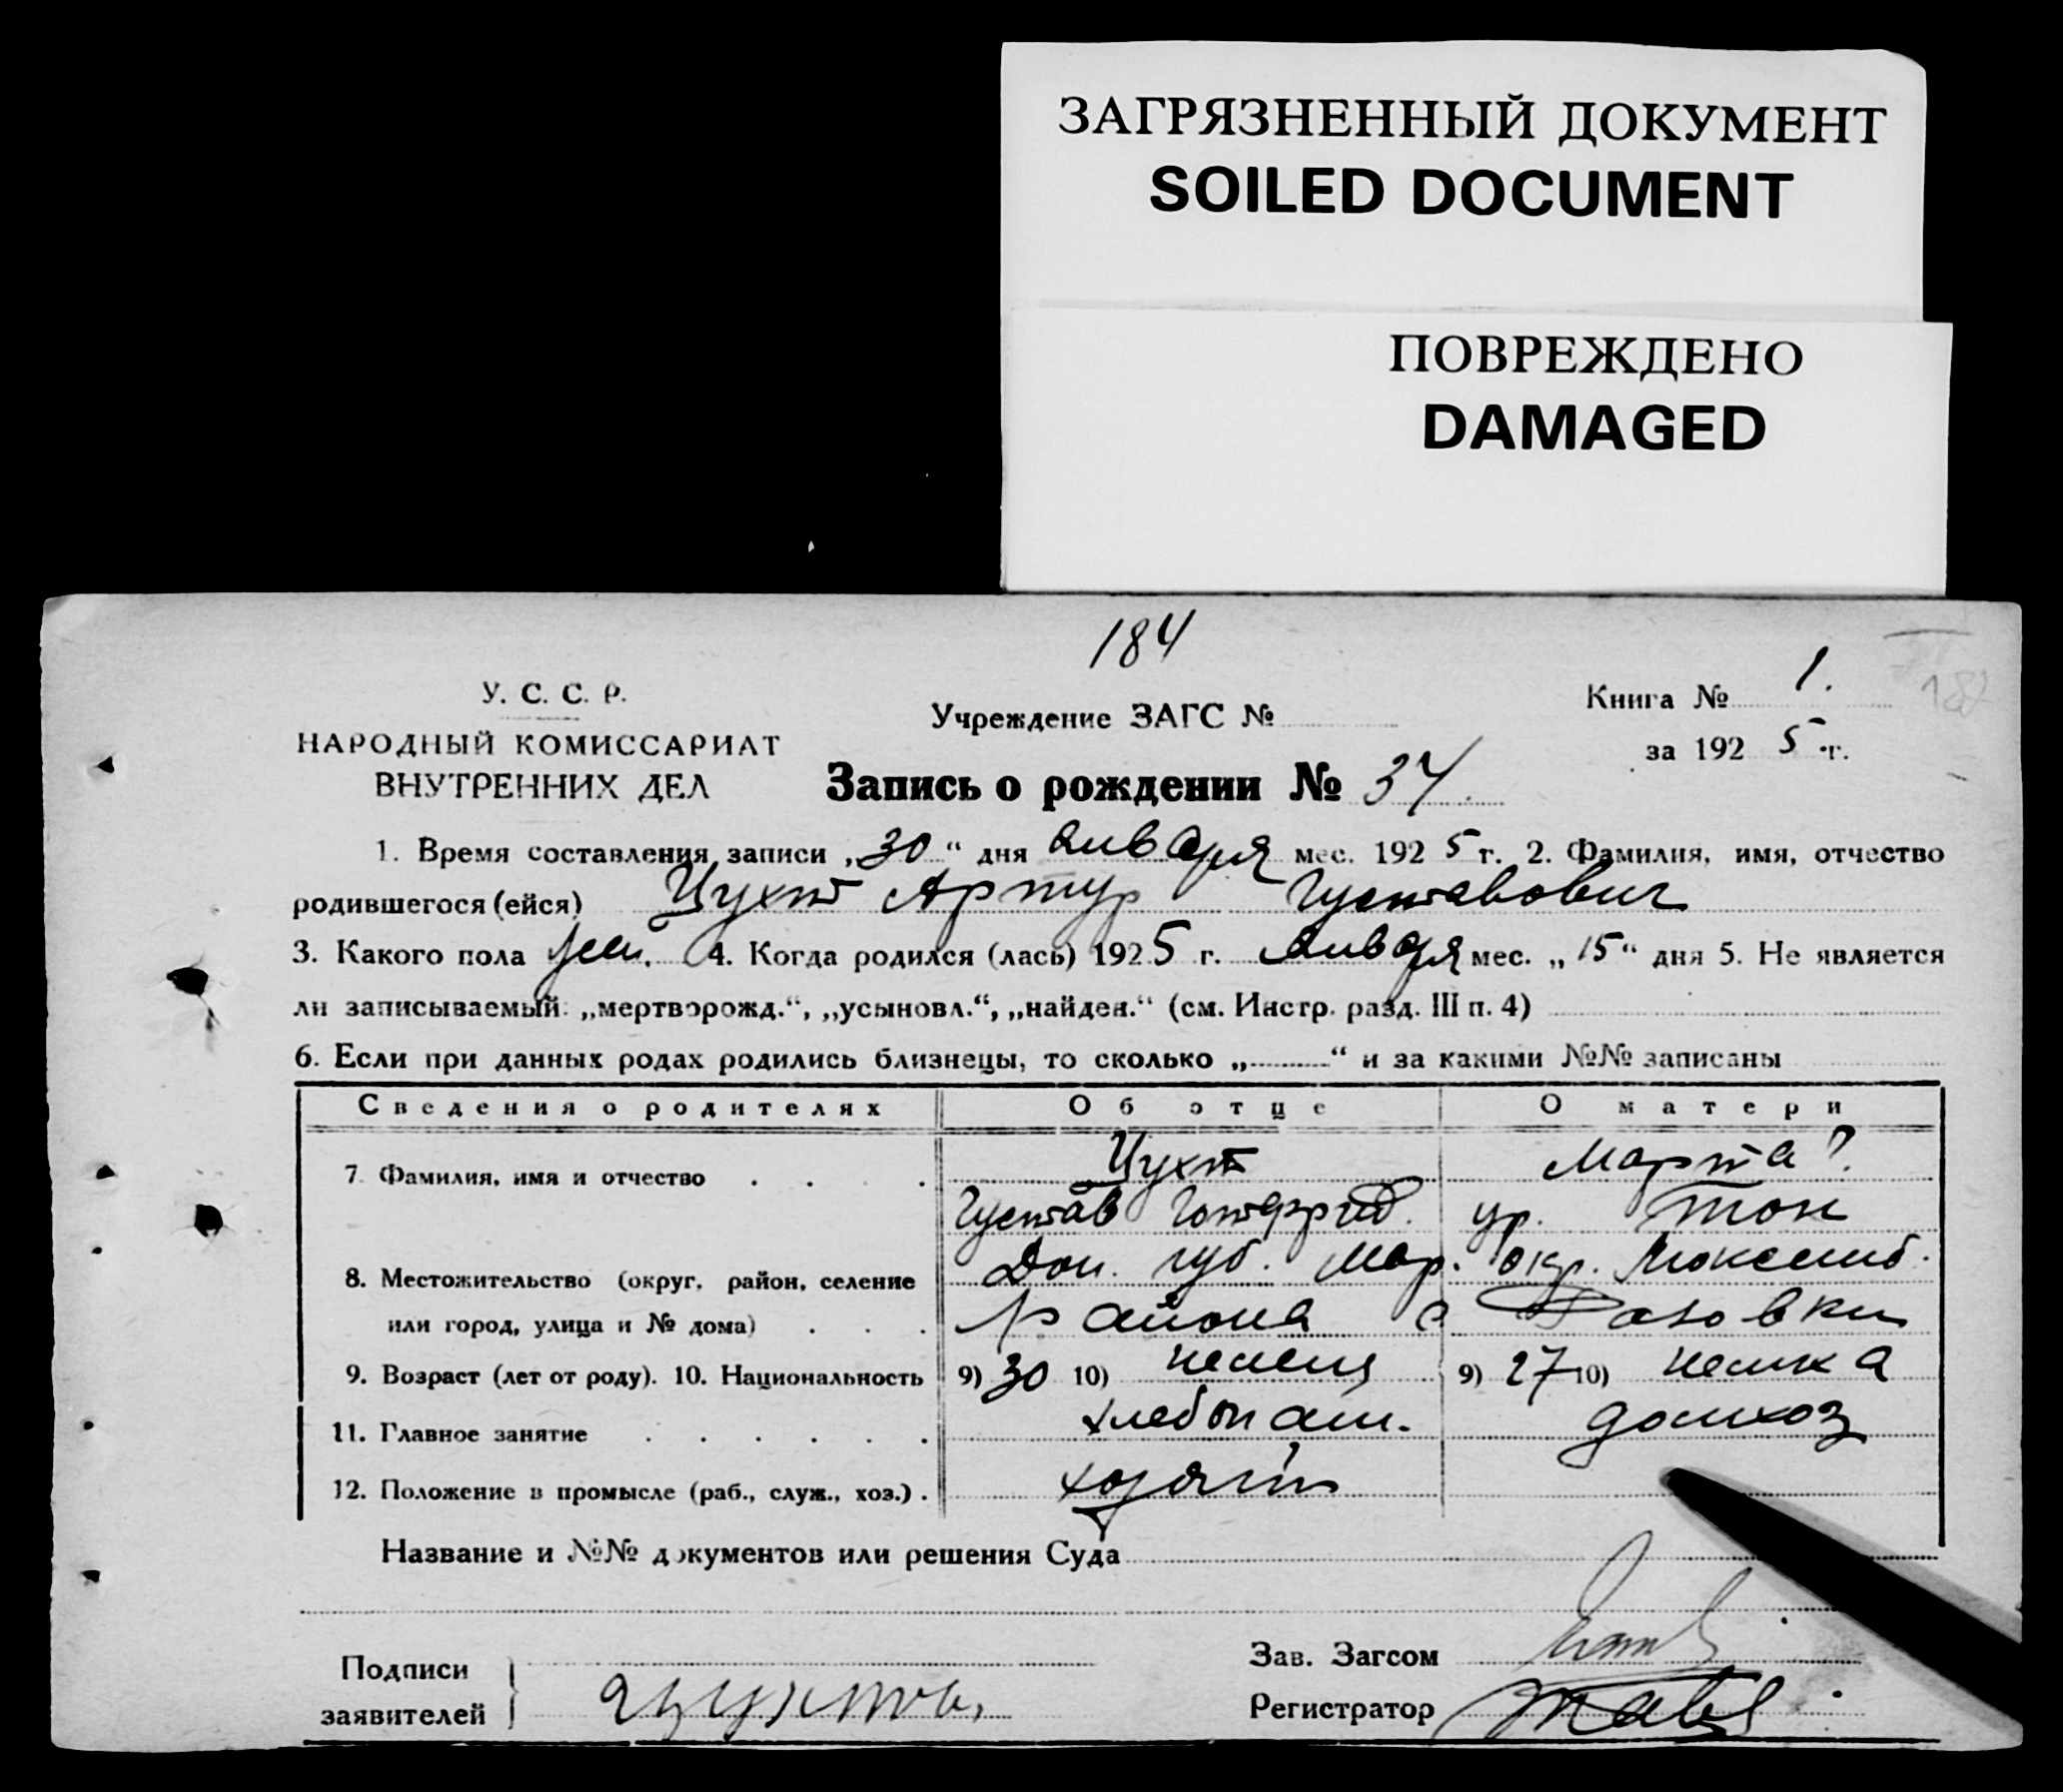 ЗАГРЯЗНЕННЫЙ ДОКУМЕНТ
SOILED DOCUMENT
ПОВРЕЖДЕНО
DAMAGED
184
У. С. С. Р.
НАРОДНЫЙ КОМИССАРИАТ
ВНУТРЕННИХ ДЕЛ
Учреждение ЗАГС №
Книга № 1.
за 1925 г.
Запись о рождении № 34.
1. Время составления записи „30“ дня января мес. 1925 г. 2. Фамилия, имя, отчество
родившегося (ейся) Цухт Артур Густавович
3. Какого пола 4. Когда родился (лась) 1925 г. января мес. „15“ дня 5. Не является
ли записываемый: „мертворожд.“, „усыновл.“, „найден.“ (см. Инстр. разд. III п. 4)
6. Если при данных родах родились близнецы, то сколько „.........“ и за какими №№ записаны
Сведения о родителях Об отце О матери
7. Фамилия, имя и отчество Цухт Марта ?
Густав Готфрид. ур. Тон
8. Местожительство (округ, район, селение Дон. губ. Мар. окр. Люксемб.
или город, улица и № дома) района с Розовки
9. Возраст (лет от роду). 10. Национальность 9) 30 10) немец 9) 27 10) немка
11. Главное занятие хлебопаш. домхоз
12. Положение в промысле (раб., служ., хоз.) . хозяин
Название и №№ документов или решения Суда
Подписи
заявителей
Зав. Загсом
Регистратор